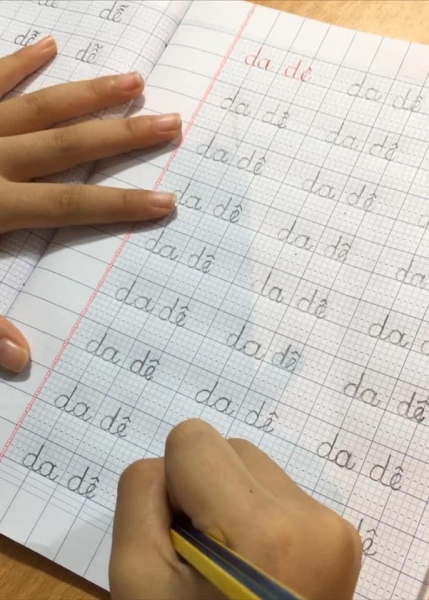 dễ
dễ dễ
da dê da dê
da dê da dê
da dê da dê
da dê da dê da
da dê da dê da
da dê da dê da dê
da dê da dê da dê
da dê dê
da dê